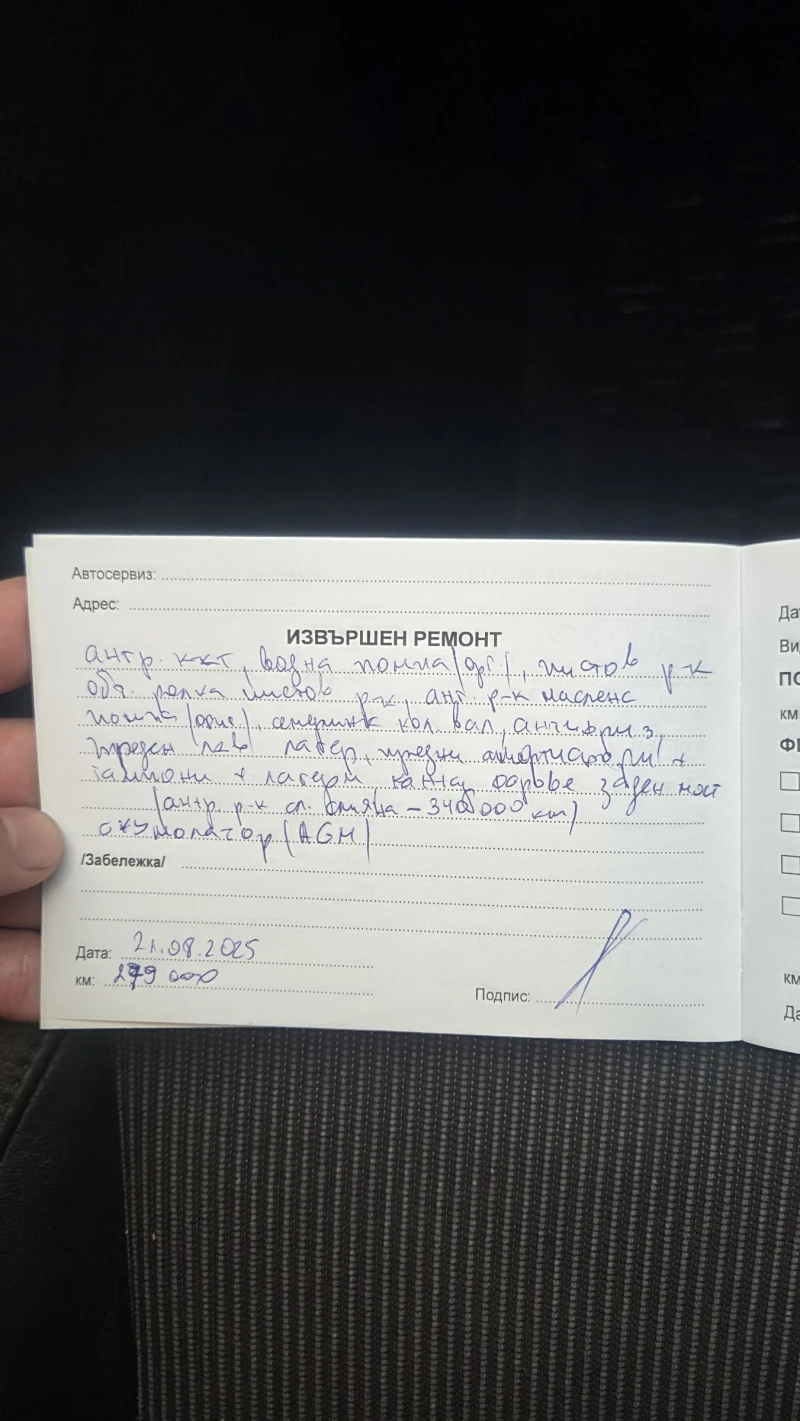 Автосервиз:
Адрес:
ИЗВЪРШЕН РЕМОНТ
ангр. к-кт, водна помпа, пистов р-к
обт. ролка пистов р-к, анг. р-к масленс
помпа, семеринк кол. вал, антифриз,
преден ляв лагер, предни амортисьори +
тампони + лагери, заден мост
(ангр. р-к сл. смяна – 340 000 км)
акумолатор (AGM)
/Забележка/
Дата: 21.08.2025
км: 279 000
Подпис:
Да
Ви
ПО
км
ФИ
км
Да